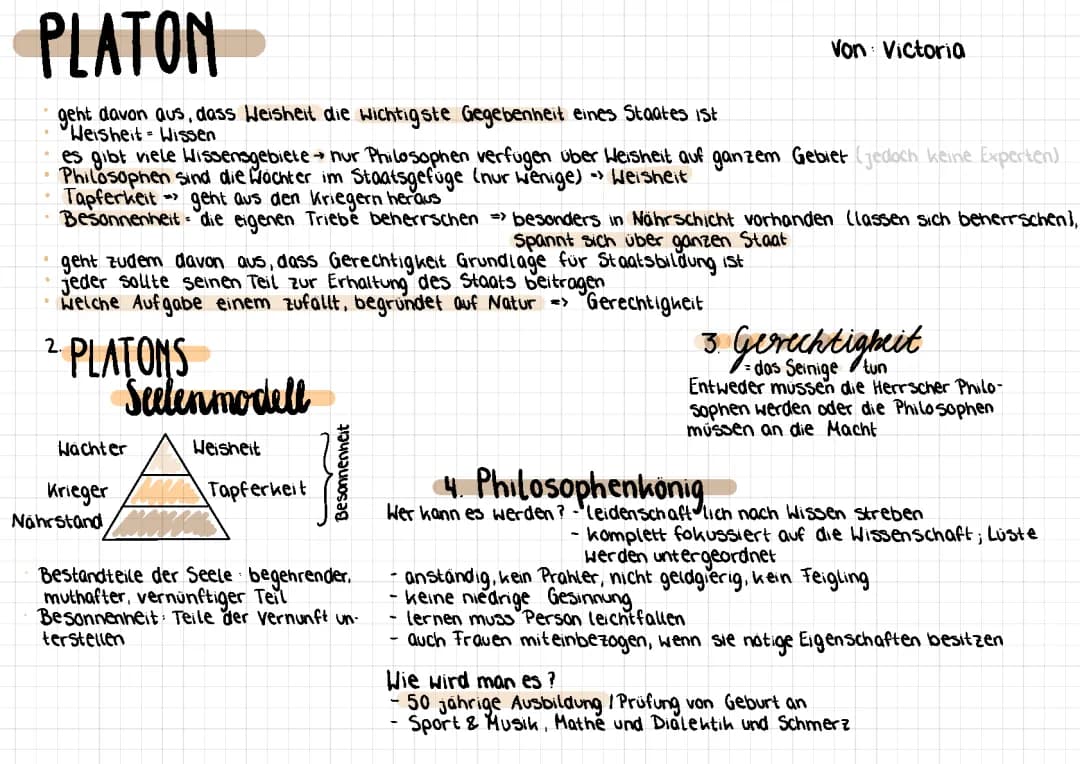 PLATON
Von: Victoria
geht davon aus, dass Weisheit die wichtigste Gegebenheit eines Staates ist
Weisheit = Wissen
es gibt viele Wissensgebiete → nur Philosophen verfügen über Weisheit auf ganzem Gebiet (jedoch keine Experten)
Philosophen sind die Wächter im Staatsgefüge (nur wenige) => Weisheit
Tapferkeit => geht aus den Kriegern heraus
Besonnenheit = die eigenen Triebe beherrschen => besonders in Nährschicht vorhanden (lassen sich beherrschen),
spannt sich über ganzen Staat
geht zudem davon aus, dass Gerechtigkeit Grundlage für Staatsbildung ist
jeder sollte seinen Teil zur Erhaltung des Staats beitragen
Welche Aufgabe einem zufällt, begründet auf Natur => Gerechtigkeit
2. PLATONS
Seelenmodell
Wächter Weisheit
Krieger Tapferkeit
Nährstand
Besonnenheit
Bestandteile der Seele: begehrender,
muthafter, vernünftiger Teil
Besonnenheit: Teile der Vernunft un-
terstellen
3. Gerechtigkeit
= das Seinige tun
Entweder müssen die Herrscher Philo-
sophen werden oder die Philosophen
müssen an die Macht
4. Philosophenkönig
Wer kann es werden? - leidenschaftlich nach Wissen streben
- komplett fokussiert auf die Wissenschaft; Lüste
werden untergeordnet
- anständig, kein Prahler, nicht geldgierig, kein Feigling
- keine niedrige Gesinnung
- lernen muss Person leichtfallen
- auch Frauen miteinbezogen, wenn sie nötige Eigenschaften besitzen
Wie wird man es?
- 50 jährige Ausbildung / Prüfung von Geburt an
- Sport & Musik, Mathe und Dialektik und Schmerz